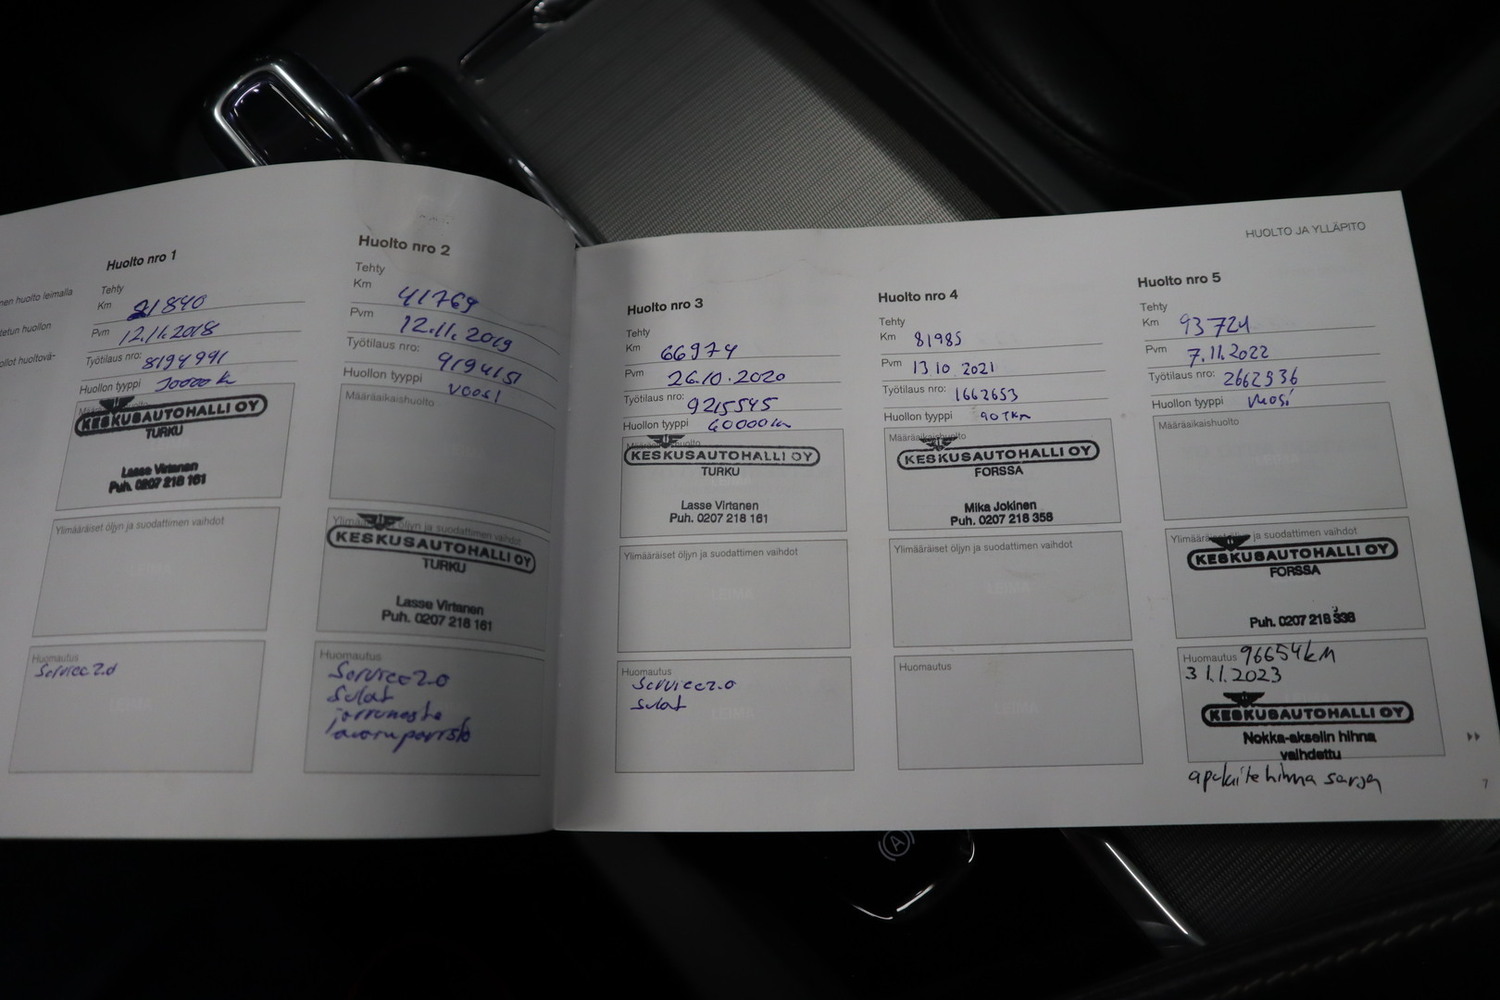 HUOLTO JA YLLÄPITO
nen huolto leimalla
tetun huollon
ollot huoltovä-
Huolto nro 1
Tehty
Km 21840
Pvm 12.11.2018
Työtilaus nro: 8194991
Huollon tyyppi 30000k
KESKUSAUTOHALLI OY
TURKU
Lasse Virtanen
Puh. 0207 218 161
Ylimääräiset öljyn ja suodattimen vaihdot
Huomautus
Service 2.0
Huolto nro 2
Tehty
Km 41769
Pvm 12.11.2019
Työtilaus nro: 9194151
Huollon tyyppi vuosi
Määräaikaishuolto
Ylimääräiset öljyn ja suodattimen vaihdot
KESKUSAUTOHALLI OY
TURKU
Lasse Virtanen
Puh. 0207 218 161
Huomautus
Service 2.0
Sulat
jarruneste
Huolto nro 3
Tehty
Km 66974
Pvm 26.10.2020
Työtilaus nro: 9215545
Huollon tyyppi 60000km
Määräaikaishuolto
KESKUSAUTOHALLI OY
TURKU
Lasse Virtanen
Puh. 0207 218 161
Ylimääräiset öljyn ja suodattimen vaihdot
LEIMA
Huomautus
Service 2.0
sulat
LEIMA
Huolto nro 4
Tehty
Km 81985
Pvm 13 10 2021
Työtilaus nro: 1662653
Huollon tyyppi 90 tkm
Määräaikaishuolto
KESKUSAUTOHALLI OY
FORSSA
Mika Jokinen
Puh. 0207 218 358
Ylimääräiset öljyn ja suodattimen vaihdot
LEIMA
Huomautus
Huolto nro 5
Tehty
Km 93724
Pvm 7.11.2022
Työtilaus nro: 2662936
Huollon tyyppi vuosi
Määräaikaishuolto
Ylimääräiset öljyn ja suodattimen vaihdot
KESKUSAUTOHALLI OY
FORSSA
Puh. 0207 218 338
Huomautus 96654km
31.1.2023
KESKUSAUTOHALLI OY
Nokka-akselin hihna
vaihdettu
apulaite hihna sarja
7
A